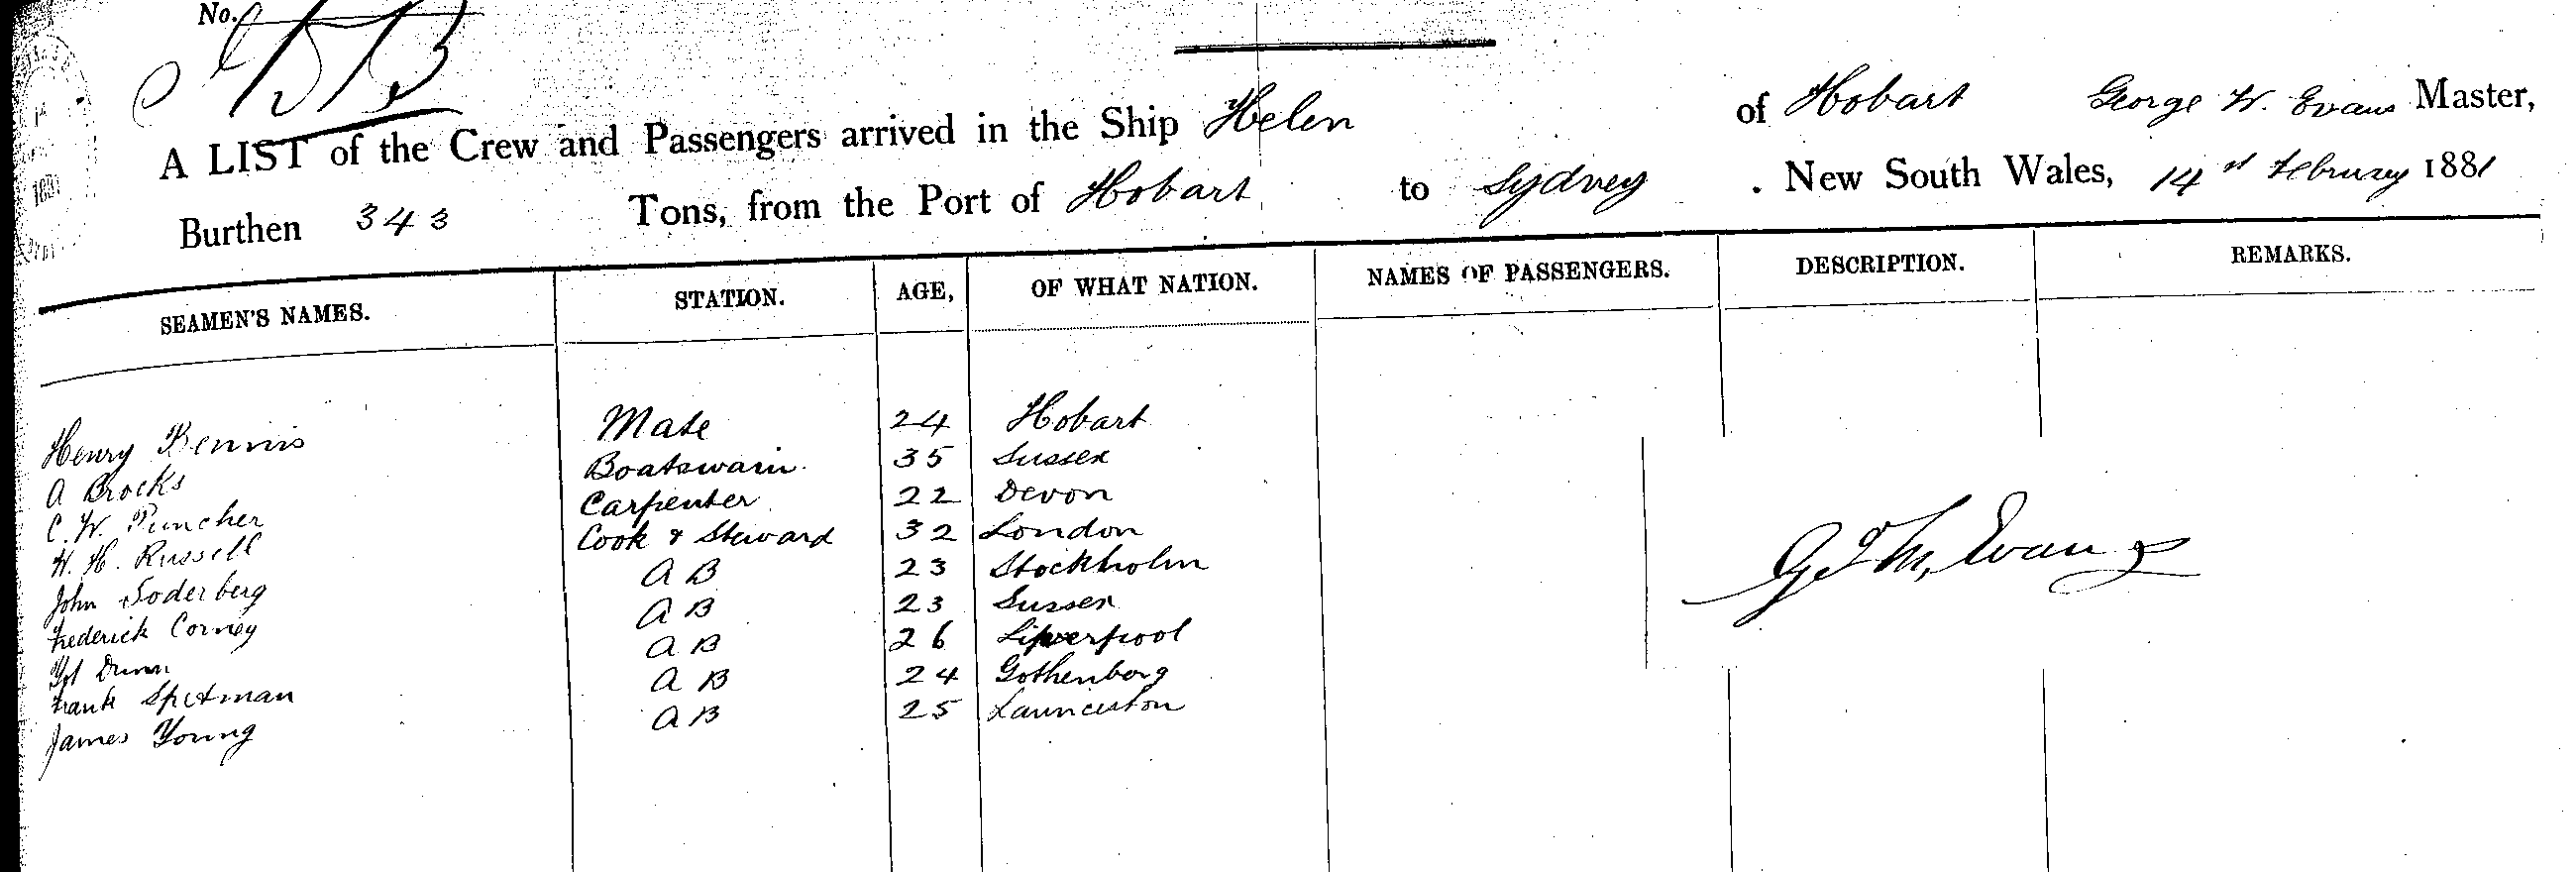 No.
A LIST of the Crew and Passengers arrived in the Ship Helen of Hobart George W. Evans Master,
Burthen 343 Tons, from the Port of Hobart to Sydney . New South Wales, 14 February 1881
SEAMEN'S NAMES. STATION. AGE, OF WHAT NATION. NAMES OF PASSENGERS. DESCRIPTION. REMARKS.
Henry Bennis Mate 24 Hobart
A Brocks Boatswain 35 Sussex
C. W. Puncher Carpenter 22 Devon
W. H. Russell Cook & Steward 32 London
John Soderberg A B 23 Stockholm
Frederick Corney A B 23 Sussex
Dunn A B 26 Liverpool
Frank A B 24 Gothenborg
James Young A B 25 Launceston
Evans